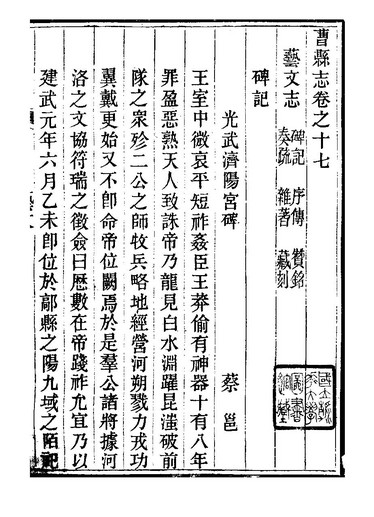 曹縣志卷之十七
藝文志
碑記 序傳 贊銘
奏疏 雜著 藏刻
碑記
光武濟陽宮碑 蔡邕
王室中微哀平短祚姦臣王莽偷有神器十有八年
罪盈惡熟天人致誅帝乃龍見白水淵躍昆滍破前
隊之衆殄二公之師牧兵略地經營河朔戮力戎功
翼戴更始又不卽命帝位闕焉於是羣公諸將據河
洛之文協符瑞之徵僉曰歷數在帝踐祚允宜乃以
建武元年六月乙未卽位於鄗縣之陽九域之陌